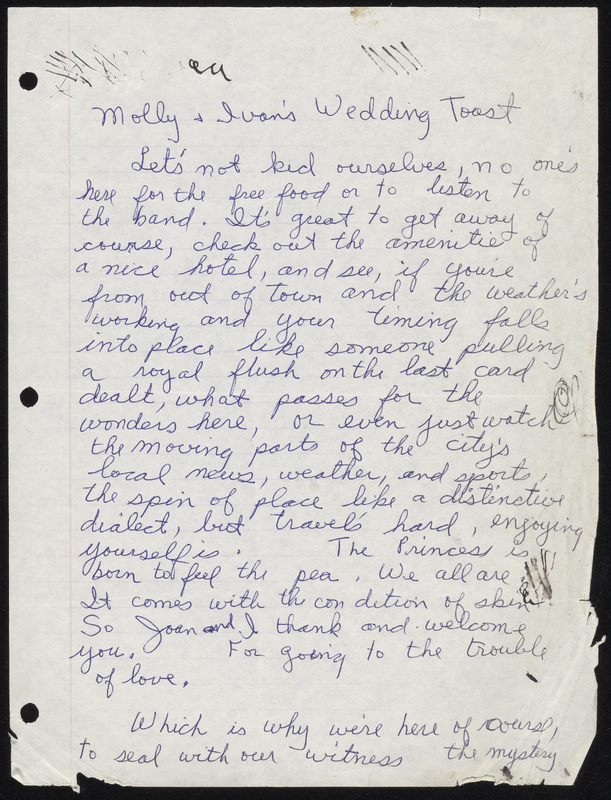 Molly & Ivan's Wedding Toast
Let's not kid ourselves, no one's
here for the free food or to listen to
the band. It's great to get away of
course, check out the amenities of
a nice hotel, and see, if you're
from out of town and the weather's
working and your timing falls
into place like someone pulling
a royal flush on the last card
dealt, what passes for the
wonders here, or even just watch
the moving parts of the city's
local news, weather, and sports,
the spin of place like a distinctive
dialect, but travel's hard, enjoying
yourself is. The Princess is
born to feel the pea. We all are
It comes with the condition of skin.
So Joan and I thank and welcome
you. For going to the trouble
of love.
Which is why we're here of course,
to seal with our witness the mystery